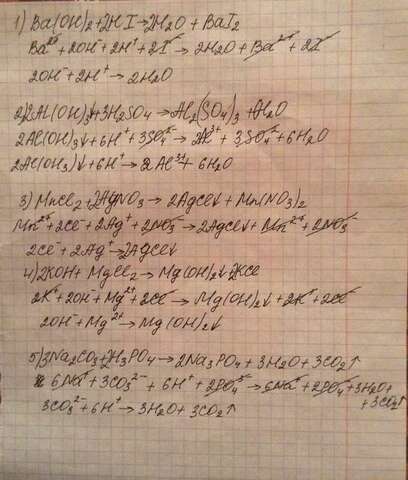 1) Ba(OH)2+2HI→2H2O + BaI2
Ba²⁺+2OH⁻+2H⁺+2I⁻→ 2H2O+Ba²⁺+2I⁻
2OH⁻+2H⁺→2H2O
2) 2Al(OH)3↓+3H2SO4→Al2(SO4)3+6H2O
2Al(OH)3↓+6H⁺+3SO4²⁻→2Al³⁺+3SO4²⁻+6H2O
2Al(OH3)↓+6H⁺→2Al³⁺+6H2O
3) MnCl2+2AgNO3→2AgCl↓+Mn(NO3)2
Mn²⁺+2Cl⁻+2Ag⁺+2NO3⁻→2AgCl↓+Mn²⁺+2NO3⁻
2Cl⁻+2Ag⁺→2AgCl↓
4) 2KOH+MgCl2→Mg(OH)2↓+2KCl
2K⁺+2OH⁻+Mg²⁺+2Cl⁻→Mg(OH)2↓+2K⁺+2Cl⁻
2OH⁻+Mg²⁺→Mg(OH)2↓
5) 3Na2CO3+2H3PO4→2Na3PO4+3H2O+3CO2↑
6Na⁺+3CO3²⁻+6H⁺+2PO4³⁻→6Na⁺+2PO4³⁻+3H2O+
+3CO2↑
3CO3²⁻+6H⁺→3H2O+3CO2↑